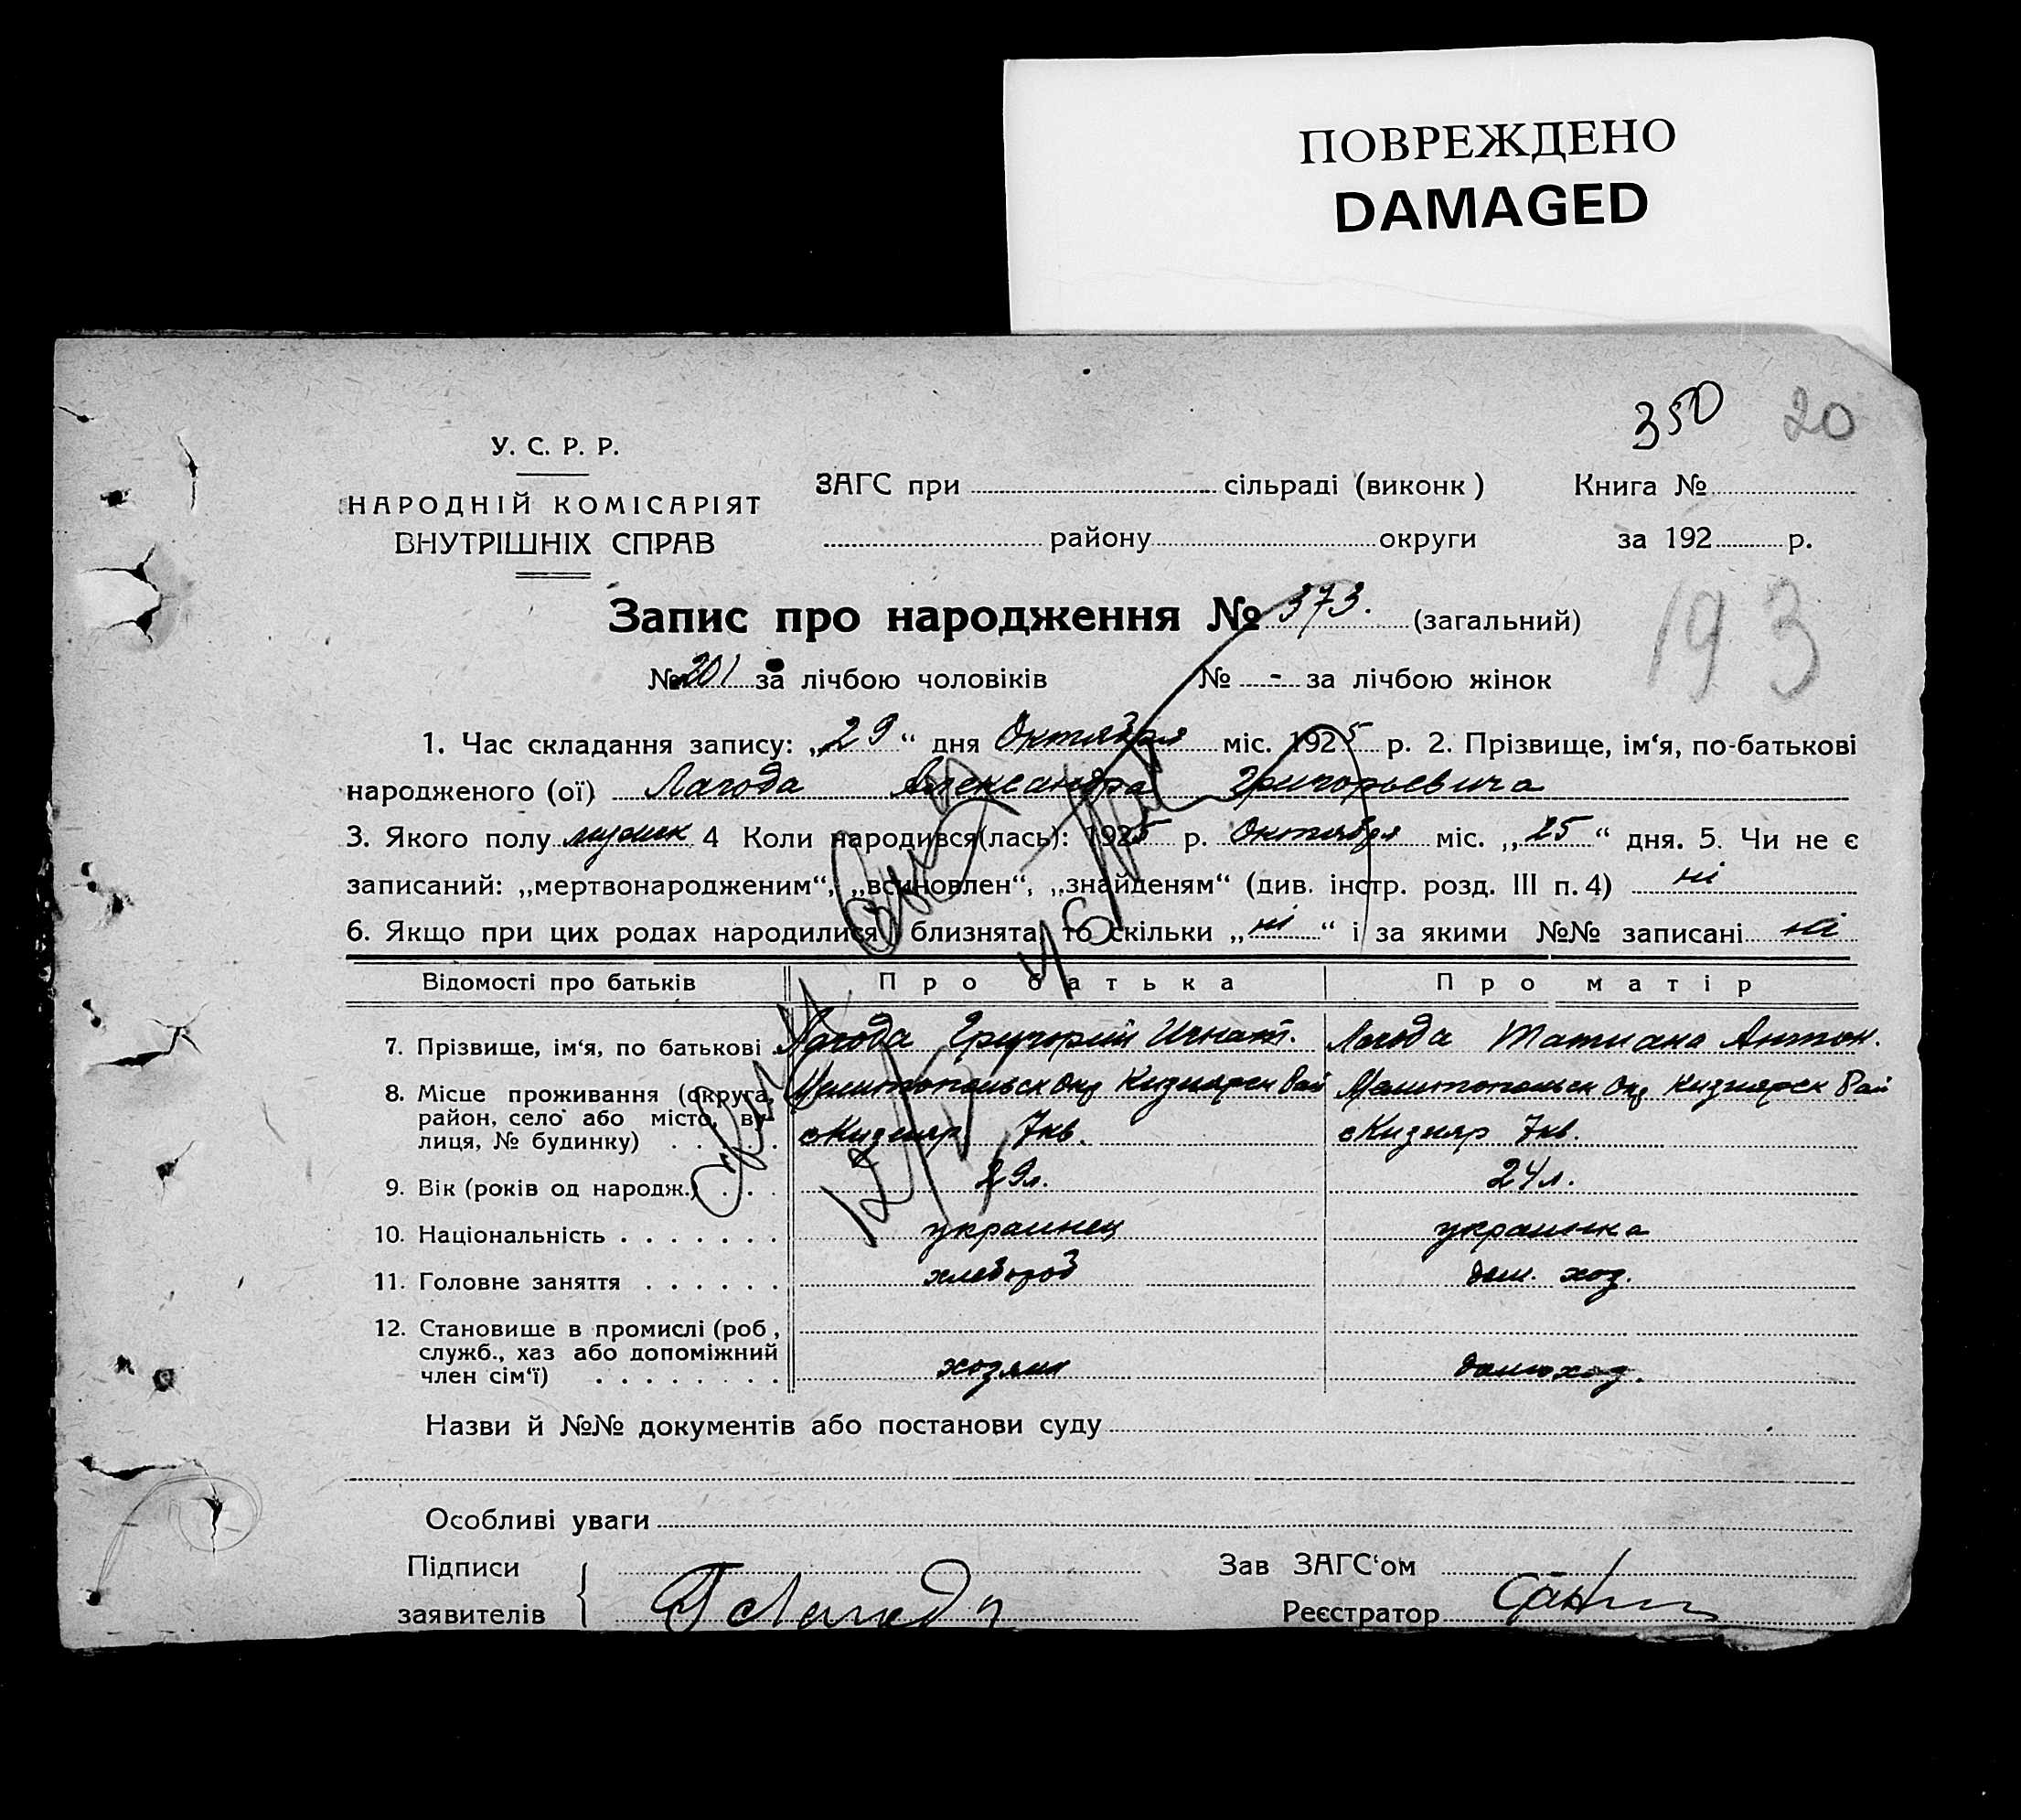 ПОВРЕЖДЕНО
DAMAGED
350 20
У. С. Р. Р.
НАРОДНІЙ КОМІСАРІЯТ
ВНУТРІШНІХ СПРАВ
ЗАГС при сільраді (виконк)
району округи
Книга №
за 192 р.
193
Запис про народження № 373. (загальний)
№ 201 за лічбою чоловіків № - за лічбою жінок
1. Час складання запису: „29“ дня Октября міс. 1925 р. 2. Прізвище, ім‘я, по-батькові
народженого (ої) Лагода Александра Григорьевича
3. Якого полу мужск 4 Коли народився(лась): 1925 р. Октября міс. „25“ дня. 5. Чи не є
записаний: „мертвонародженим“, „всиновлен“, „знайденям“ (див. інстр. розд. III п. 4) ні
6. Якщо при цих родах народилися близнята, то скільки „ні“ і за якими №№ записані ні
Відомості про батьків Про батька Про матір
7. Прізвище, ім‘я, по батькові Лагода Григорий Игнат. Лагода Татиана Антон.
8. Місце проживання (округа, Мелитопольск окр Кизиярск Рай Мелитопольск окр Кизиярск Рай
район, село або місто, ву-
лиця, № будинку) с Кизияр 7кв. с Кизияр 7кв.
9. Вік (років од народж.) 29л. 24л.
10. Національність украинец украинка
11. Головне заняття хлебороб дом. хоз.
12. Становище в промислі (роб,
служб., хаз або допоміжний
член сім‘ї) хозяин домохоз.
Назви й №№ документів або постанови суду
Особливі уваги
Підписи
заявителів
Зав ЗАГС‘ом
Реєстратор